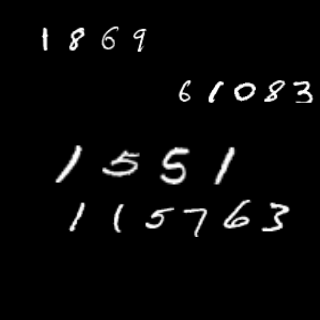 1869
61083
1551
115763